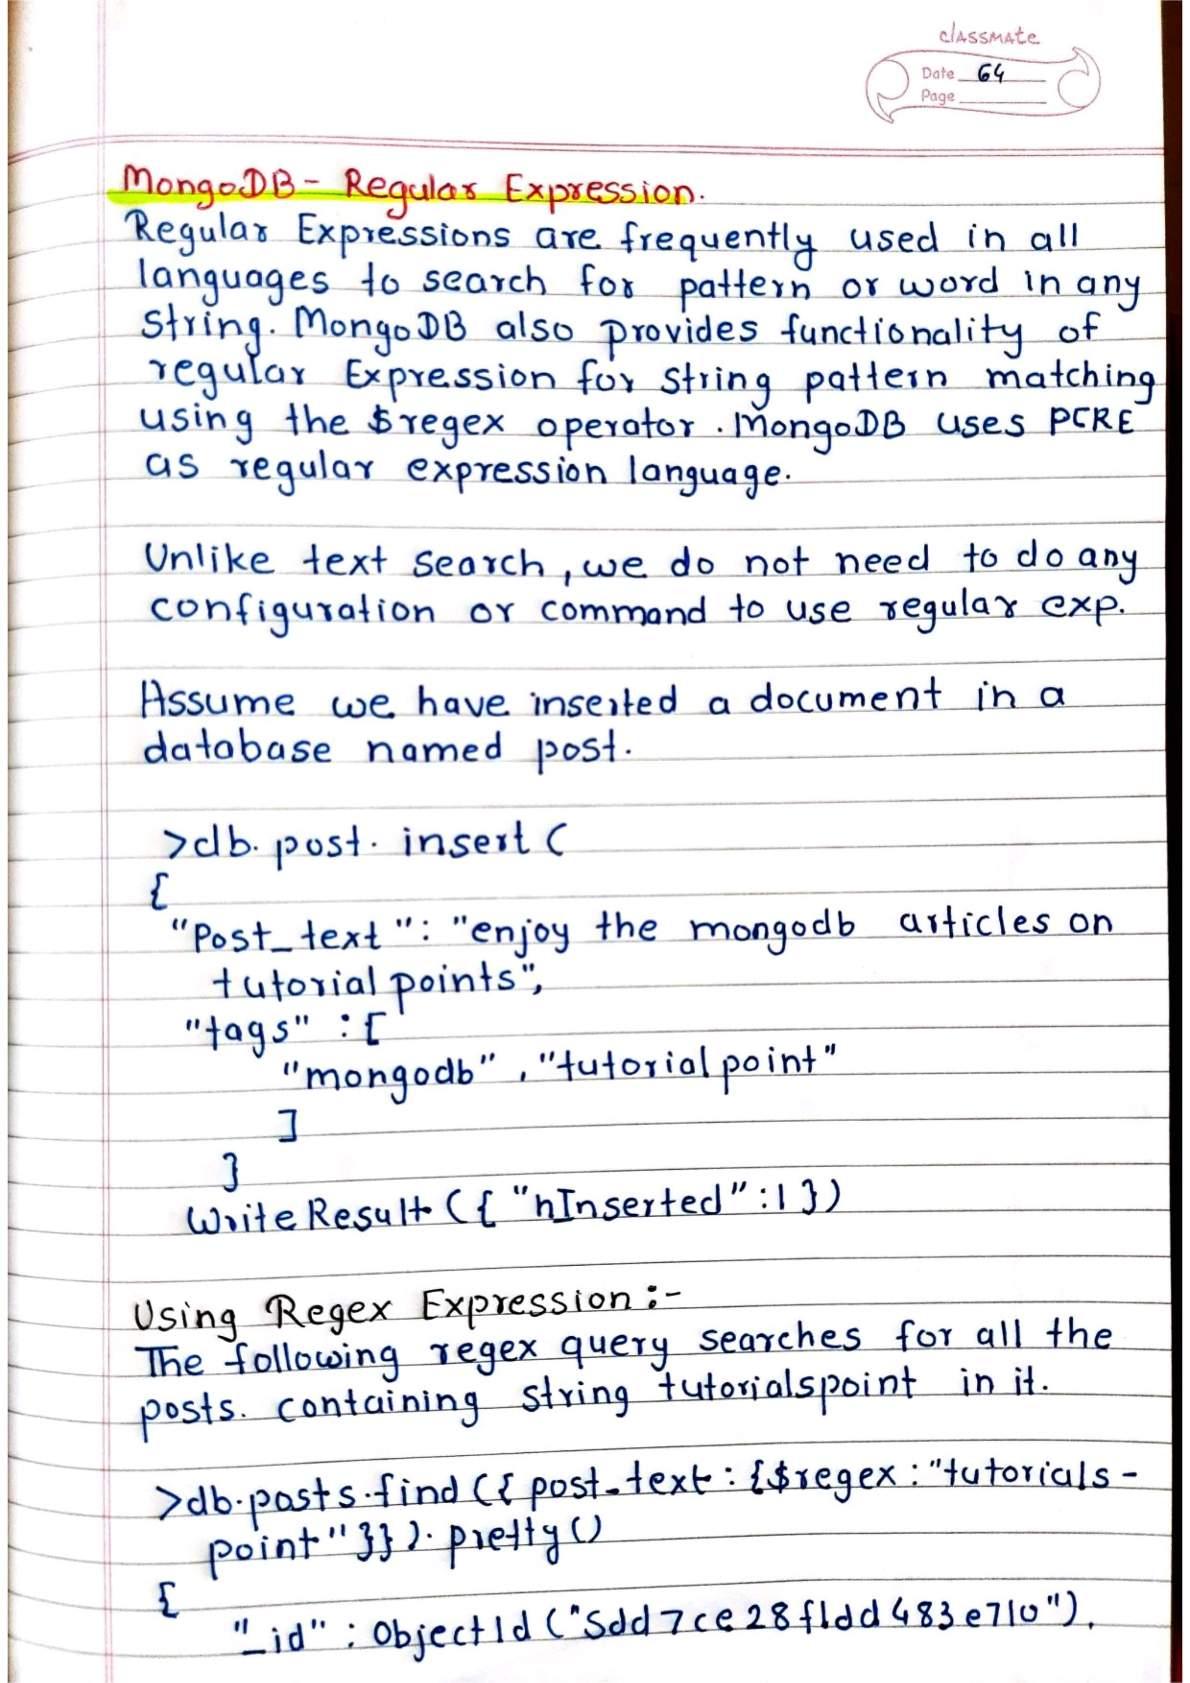 classmate
Date 64
Page
MongoDB - Regular Expression.
Regular Expressions are frequently used in all
languages to search for pattern or word in any
string. MongoDB also provides functionality of
regular Expression for string pattern matching
using the $regex operator. MongoDB uses PCRE
as regular expression language.
Unlike text search, we do not need to do any
configuration or command to use regular exp.
Assume we have inserted a document in a
database named post.
>db.post.insert(
{
"Post_text": "enjoy the mongodb articles on
tutorial points",
"tags" : [
"mongodb", "tutorial point"
]
}
WriteResult ({ "nInserted" : 1 })
Using Regex Expression :-
The following regex query searches for all the
posts. containing string tutorialspoint in it.
>db.posts.find ({ post_text : {$regex : "tutorials-
point" }} ). pretty ()
{
"_id" : ObjectId ("5dd7ce28f1dd483e710"),